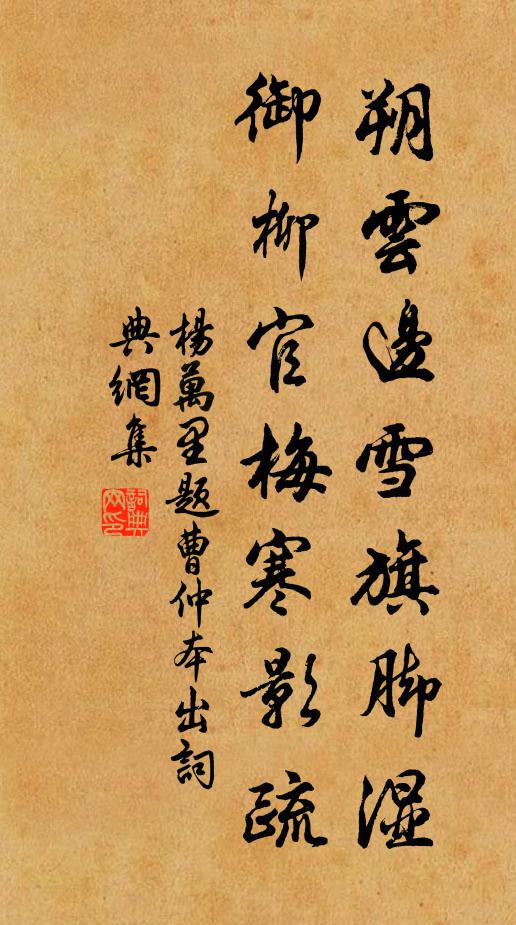 朔雲邊雪旗脚濕
御柳官梅寒影疏
楊萬里題曹仲本出詞
典網集
詞典網印